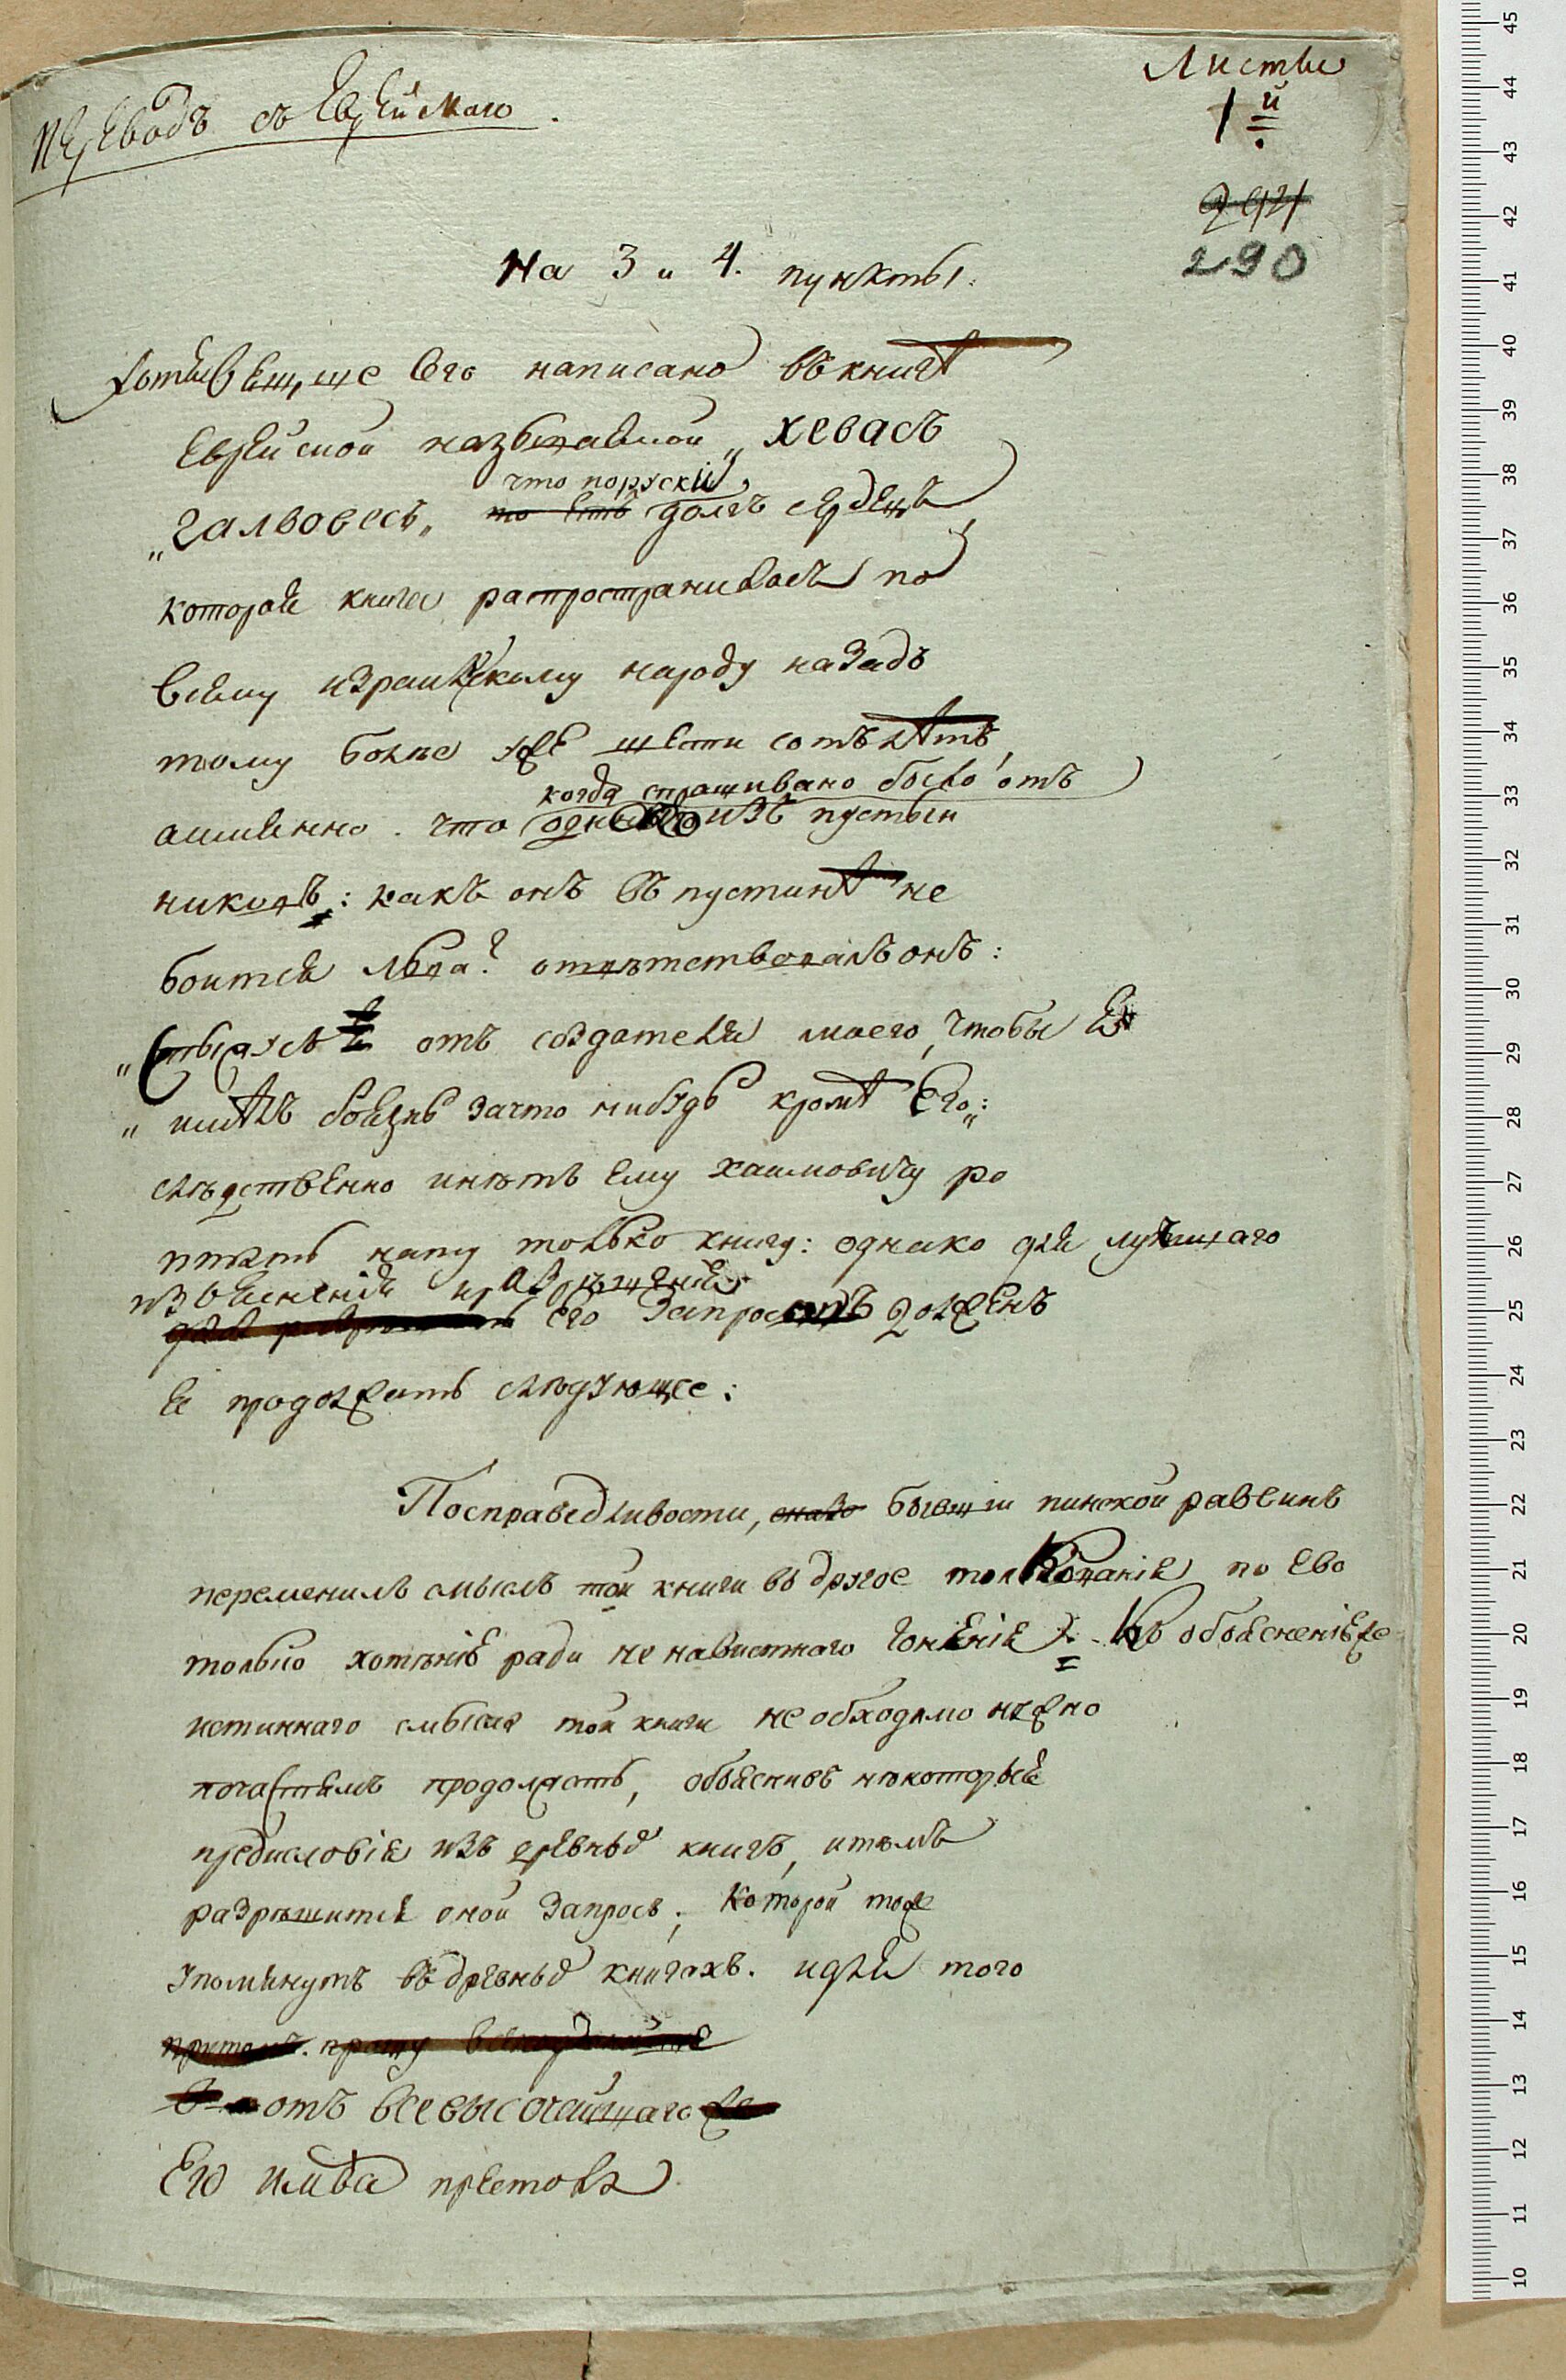 Переводъ съ Еврейскаго.
Листы
1й
290
На 3 и 4. пункты:
Хотя вещще Его написано въ книгѣ
Еврейской называемой „Хевасъ
„галвовесъ„ что поруский то есть долгъ сердецъ
которая книга распространилась по
всему израильскому народу назадъ
тому болѣе уже шести сотъ лѣтъ,
аимѣнно. что когда спрашивано было отъ
одного изъ пустын
никовъ: какъ онъ въ пустинѣ не
боится льва? отвѣтствовалъ онъ:
„ стыжусь я отъ создателя моего, чтобы я
„ имѣлъ боязнь зачто нибудь кромѣ Его„:
слѣдственно имѣтъ Ему хаимовичу ро
птать нату только книгу: однако для лутшаго
изъясненія и разрѣшенія
Его запросовъ долженъ
я продолжать слѣдующее:
Посправедливости, бывши пинской раввинъ
переменилъ смыслъ той книги въ другое толкованіе по Ево
только хотѣнію ради не навистнаго гоненія. Ко обьясненію же
истиннаго смысла той книги не обходимо нужно
почастямъ продолжать, обьяснивъ нѣкоторыя
предисловія изъ древныхъ книгъ, итемъ
разрѣшится оной запросъ; Которой тоже
упомянутъ въ древныхъ книгахъ. идля того
притомъ прошу
отъ всевысочайшаго
Его имп-ва престола